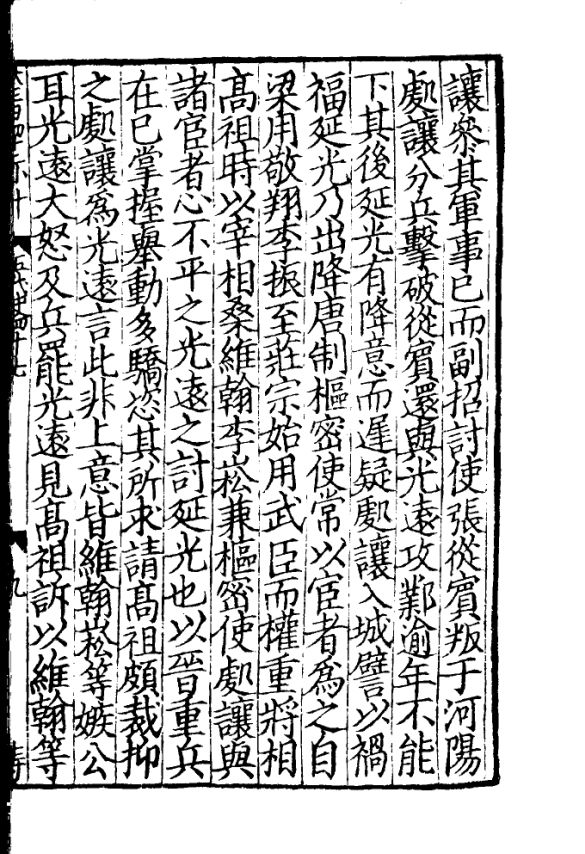 讓參其軍事已而副招討使張從賓叛于河陽
處讓分兵擊破從賓還與光遠攻鄴逾年不能
下其後延光有降意而遲疑處讓入城譬以禍
福延光乃出降唐制樞密使常以宦者爲之自
梁用敬翔李振至莊宗始用武臣而權重將相
髙祖時以宰相桑維翰李崧兼樞密使處讓與
諸宦者心不平之光遠之討延光也以晉重兵
在已掌握舉動多驕恣其所求請髙祖頗裁抑
之處讓爲光遠言此非上意皆維翰崧等嫉公
耳光遠大怒及兵罷光遠見髙祖訴以維翰等
五代史四十七
九